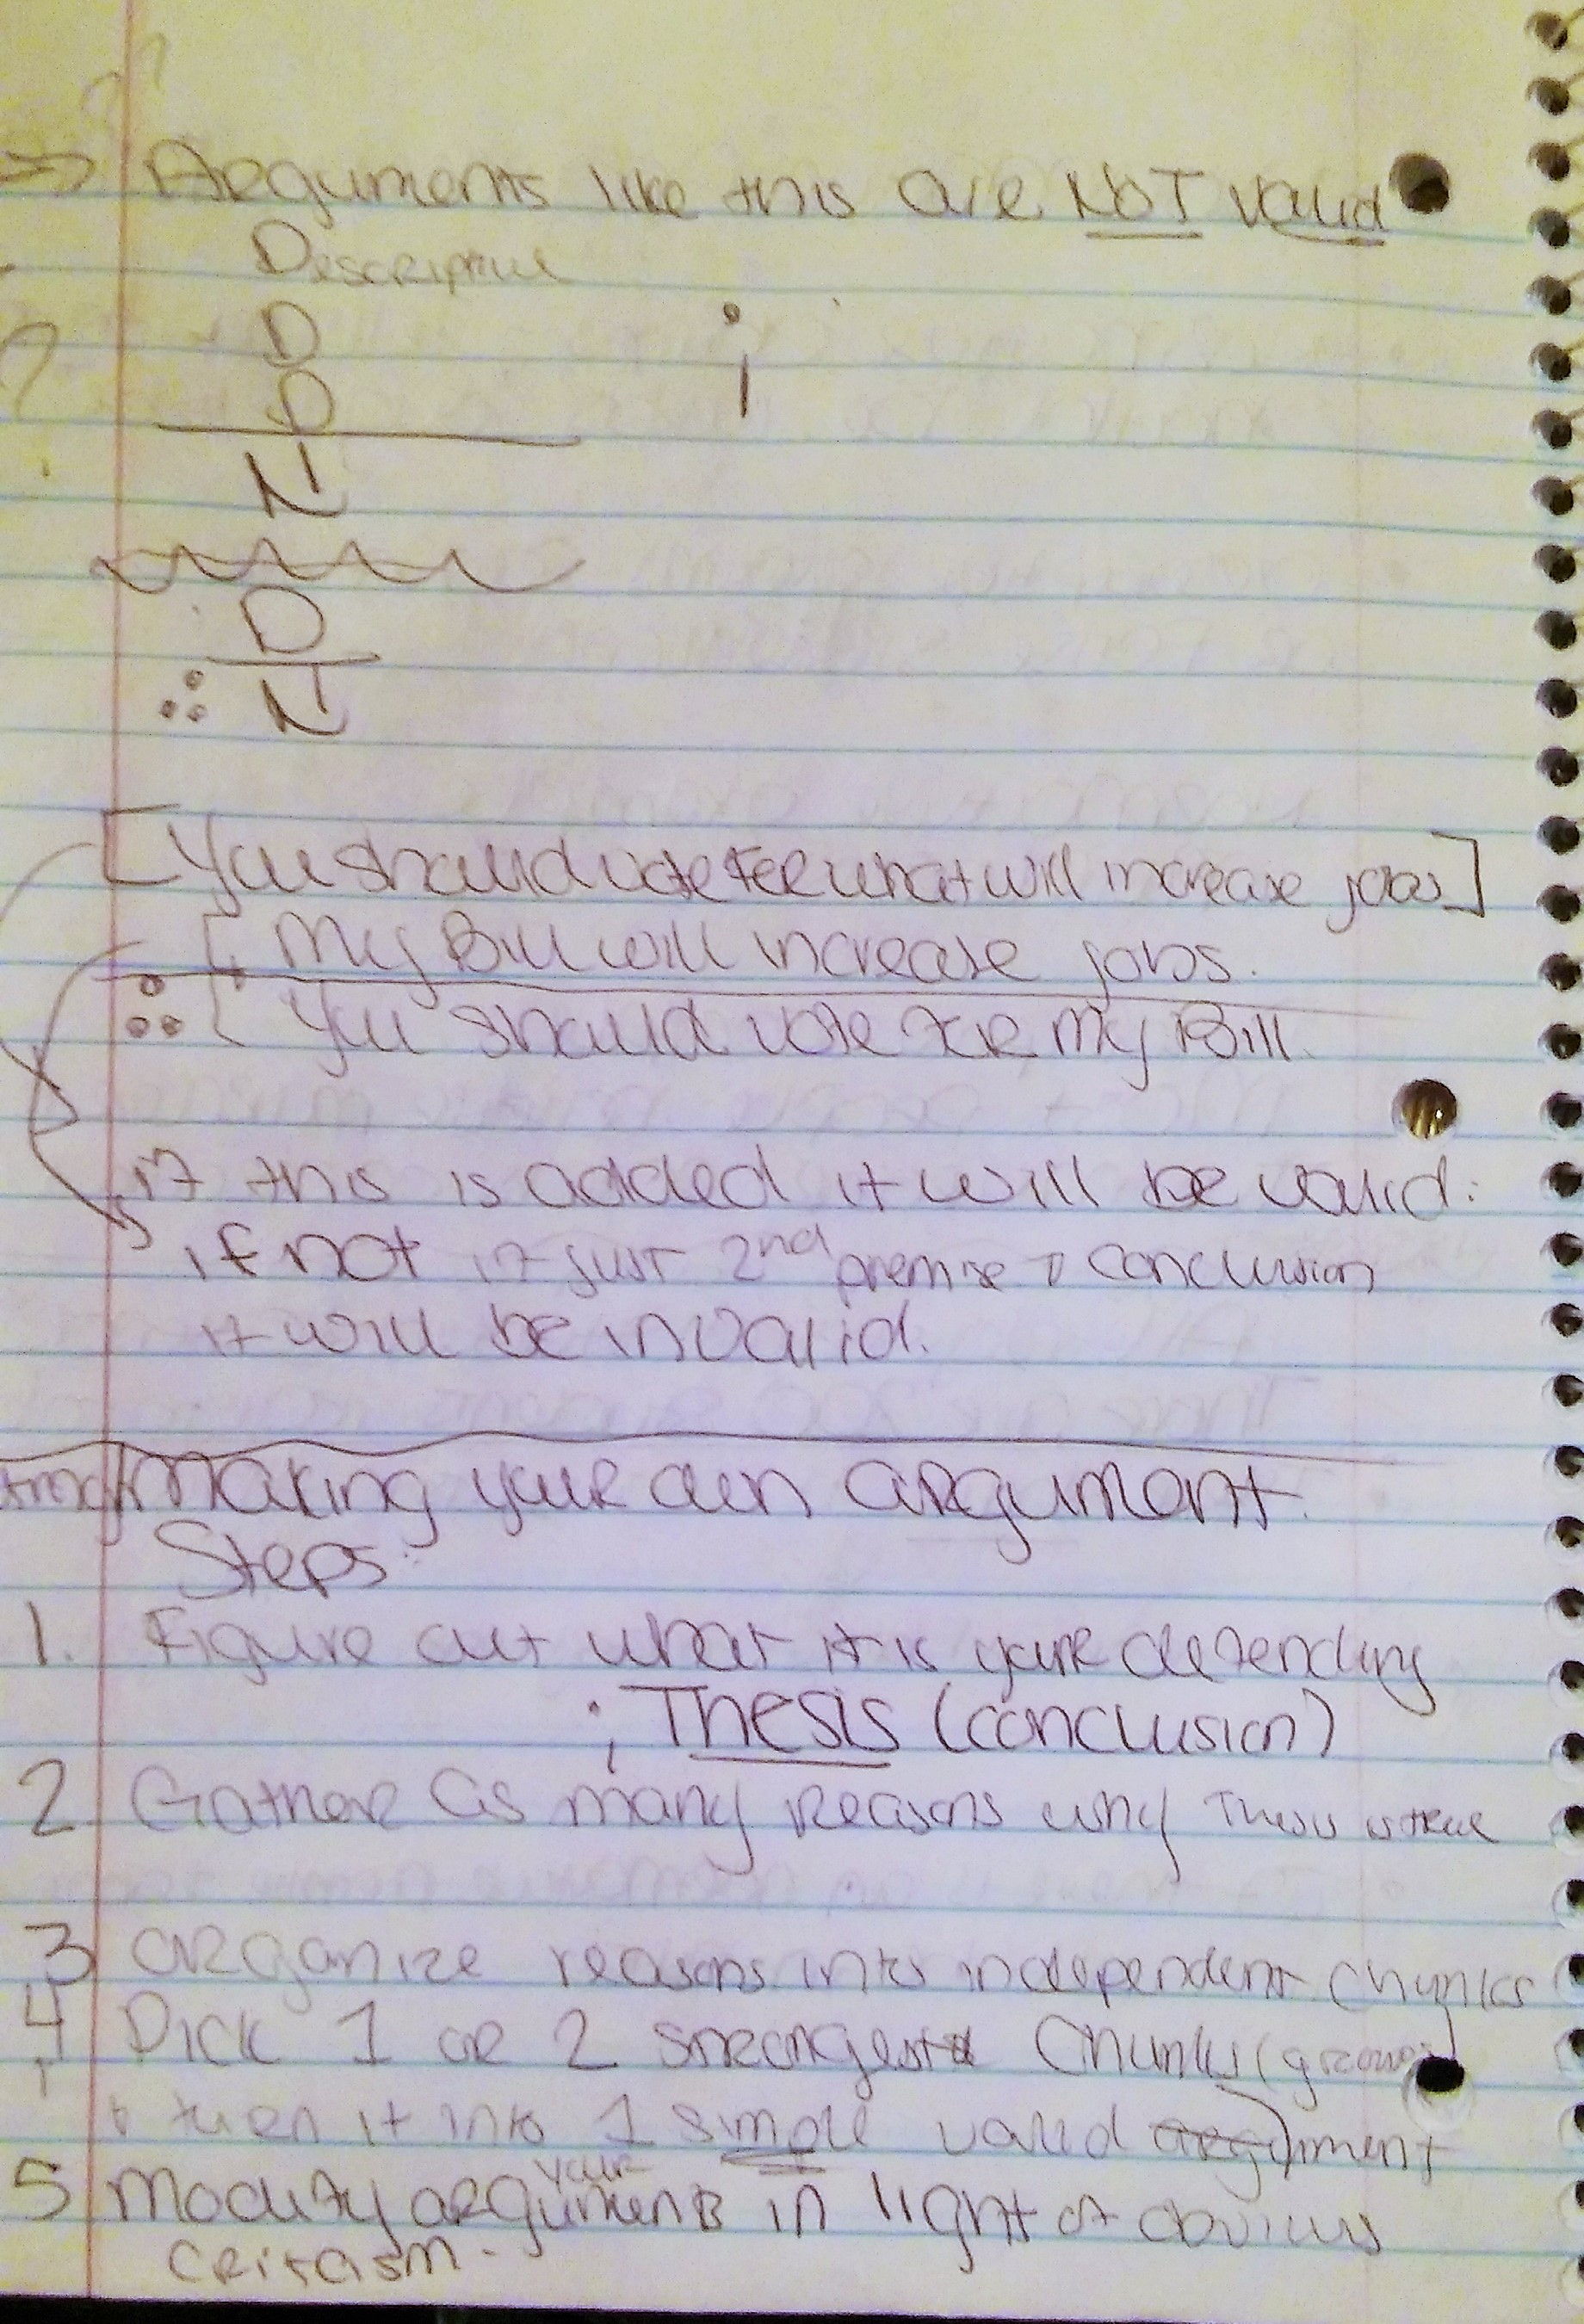 ⇒ Arguments like this are NOT valid
Descriptive
D
D
N
D
∴ N
[You should vote for what will increase jobs]
[My Bill will increase jobs.
∴ [You should vote for my Bill.
if this is added it will be valid.
if not if just 2nd premise & conclusion
it will be invalid.
Making your own argument.
Steps:
1. Figure out what it is your defending
; Thesis (conclusion)
2 Gather as many reasons why Thesis is true
3 Organize reasons into independent chunks
4 Pick 1 or 2 strongest chunks (
& turn it into 1 simple valid argument
5 Modify your arguments in light of obvious
critasism.